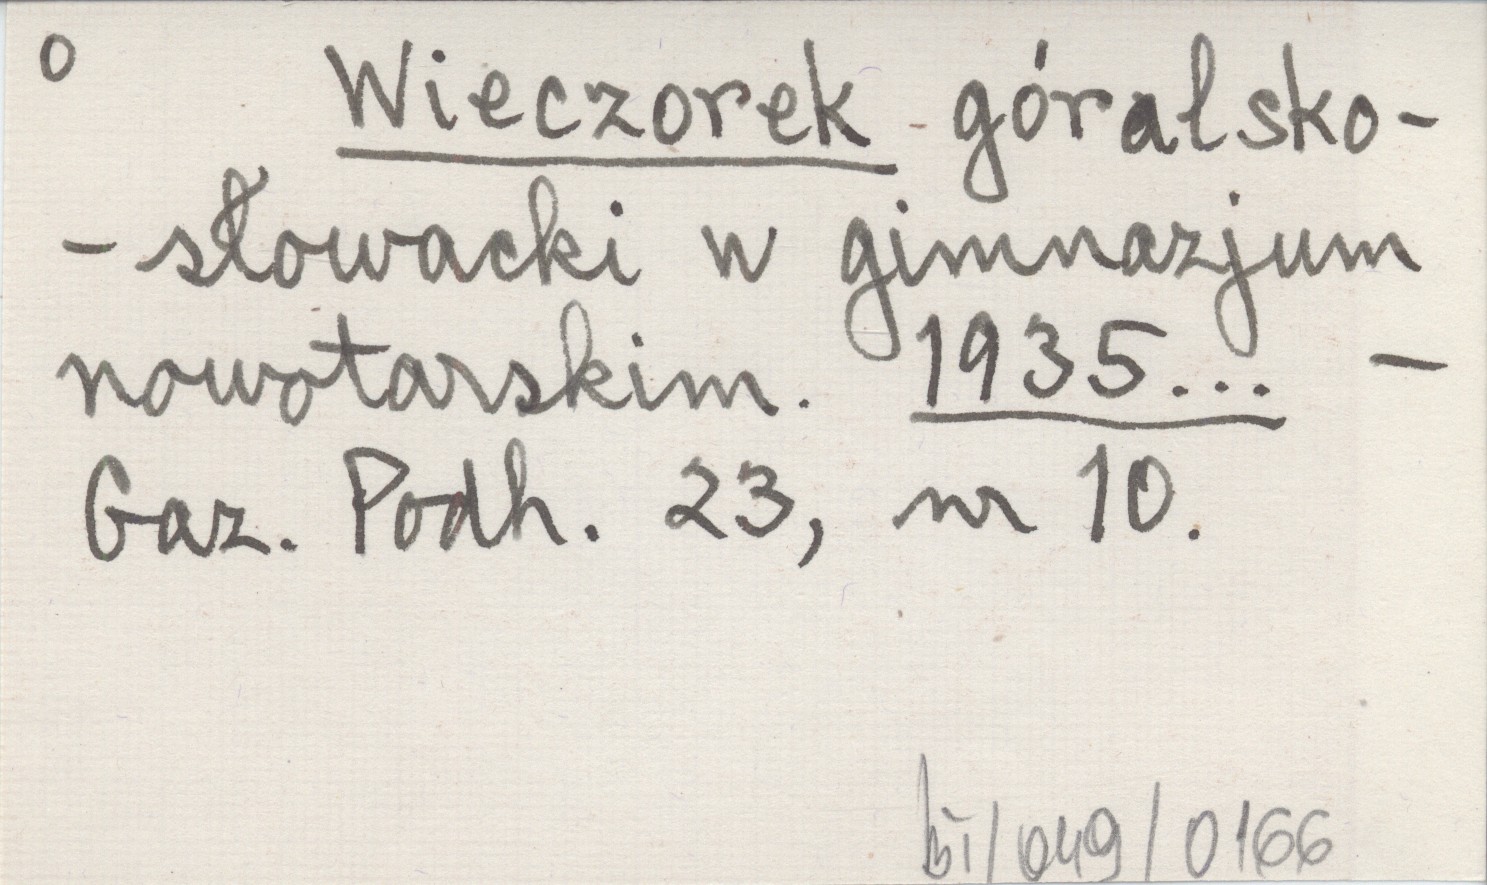 o Wieczorek góralsko-
- słowacki w gimnazjum
nowotarskim. 1935... -
Gaz. Podh. 23, nr 10.
bi/049/0166